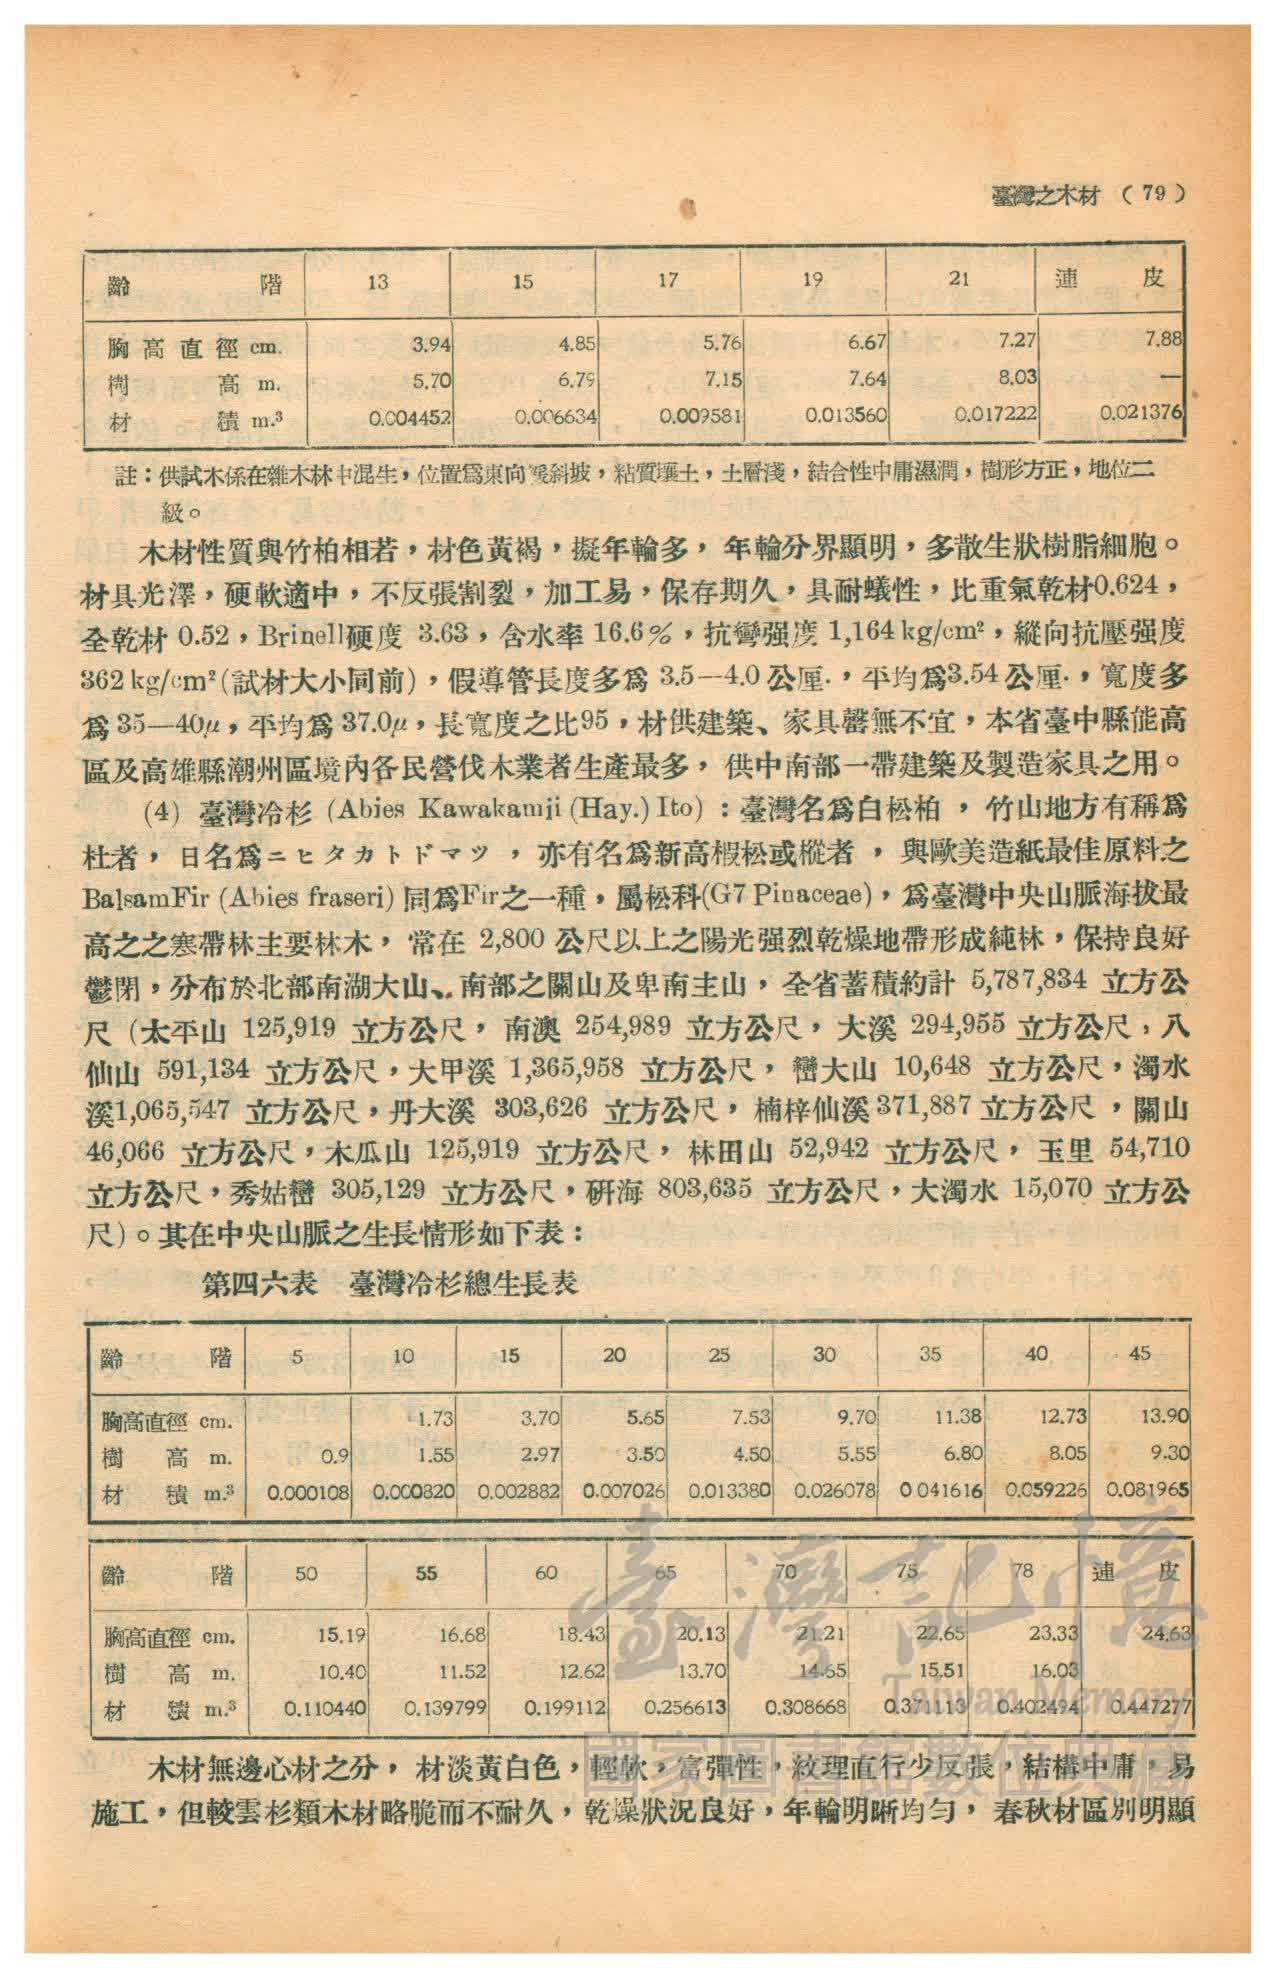 臺灣之木材 (79)
齡階 13 15 17 19 21 連皮
胸高直徑 cm. 3.94 4.85 5.76 6.67 7.27 7.88
樹高 m. 5.70 6.79 7.15 7.64 8.03 —
材積 m.³ 0.004452 0.006634 0.009581 0.013560 0.017222 0.021376
註：供試木係在雜木林中混生，位置爲東向緩斜坡，粘質壤土，土層淺，結合性中庸濕潤，樹形方正，地位二
級。
木材性質與竹柏相若，材色黃褐，擬年輪多，年輪分界顯明，多散生狀樹脂細胞。
材具光澤，硬軟適中，不反張割裂，加工易，保存期久，具耐蟻性，比重氣乾材0.624，
全乾材 0.52，Brinell硬度 3.63，含水率 16.6%，抗彎强度 1,164 kg/cm²，縱向抗壓强度
362 kg/cm²(試材大小同前)，假導管長度多爲 3.5—4.0 公厘.，平均爲3.54 公厘.，寬度多
爲 35—40μ，平均爲 37.0μ，長寬度之比95，材供建築、家具罄無不宜，本省臺中縣能高
區及高雄縣潮州區境內各民營伐木業者生產最多，供中南部一帶建築及製造家具之用。
(4) 臺灣冷杉 (Abies Kawakamii (Hay.) Ito)：臺灣名爲白松柏，竹山地方有稱爲
杜者，日名爲ニヒタカトドマツ，亦有名爲新高椴松或樅者，與歐美造紙最佳原料之
BalsamFir (Abies fraseri) 同爲Fir之一種，屬松科(G7 Pinaceae)，爲臺灣中央山脈海拔最
高之之寒帶林主要林木，常在 2,800 公尺以上之陽光强烈乾燥地帶形成純林，保持良好
鬱閉，分布於北部南湖大山、南部之關山及卑南主山，全省蓄積約計 5,787,834 立方公
尺 (太平山 125,919 立方公尺，南澳 254,989 立方公尺，大溪 294,955 立方公尺，八
仙山 591,134 立方公尺，大甲溪 1,365,958 立方公尺，巒大山 10,648 立方公尺，濁水
溪1,065,547 立方公尺，丹大溪 303,626 立方公尺，楠梓仙溪371,887 立方公尺，關山
46,066 立方公尺，木瓜山 125,919 立方公尺，林田山 52,942 立方公尺，玉里 54,710
立方公尺，秀姑巒 305,129 立方公尺，硏海 803,635 立方公尺，大濁水 15,070 立方公
尺)。其在中央山脈之生長情形如下表：
第四六表 臺灣冷杉總生長表
齡階 5 10 15 20 25 30 35 40 45
胸高直徑 cm. 1.73 3.70 5.65 7.53 9.70 11.38 12.73 13.90
樹高 m. 0.9 1.55 2.97 3.50 4.50 5.55 6.80 8.05 9.30
材積 m.³ 0.000108 0.000820 0.002882 0.007026 0.013380 0.026078 0 041616 0.059226 0.081965
齡階 50 55 60 65 70 75 78 連皮
胸高直徑 cm. 15.19 16.68 18.43 20.13 21.21 22.65 23.33 24.63
樹高 m. 10.40 11.52 12.62 13.70 14.65 15.51 16.03
材積 m.³ 0.110440 0.139799 0.199112 0.256613 0.308668 0.371113 0.402494 0.447277
木材無邊心材之分，材淡黃白色，輕軟，富彈性，紋理直行少反張，結構中庸，易
施工，但較雲杉類木材略脆而不耐久，乾燥狀況良好，年輪明晰均勻，春秋材區別明顯
臺灣記憶
Taiwan Memory
國家圖書館數位典藏